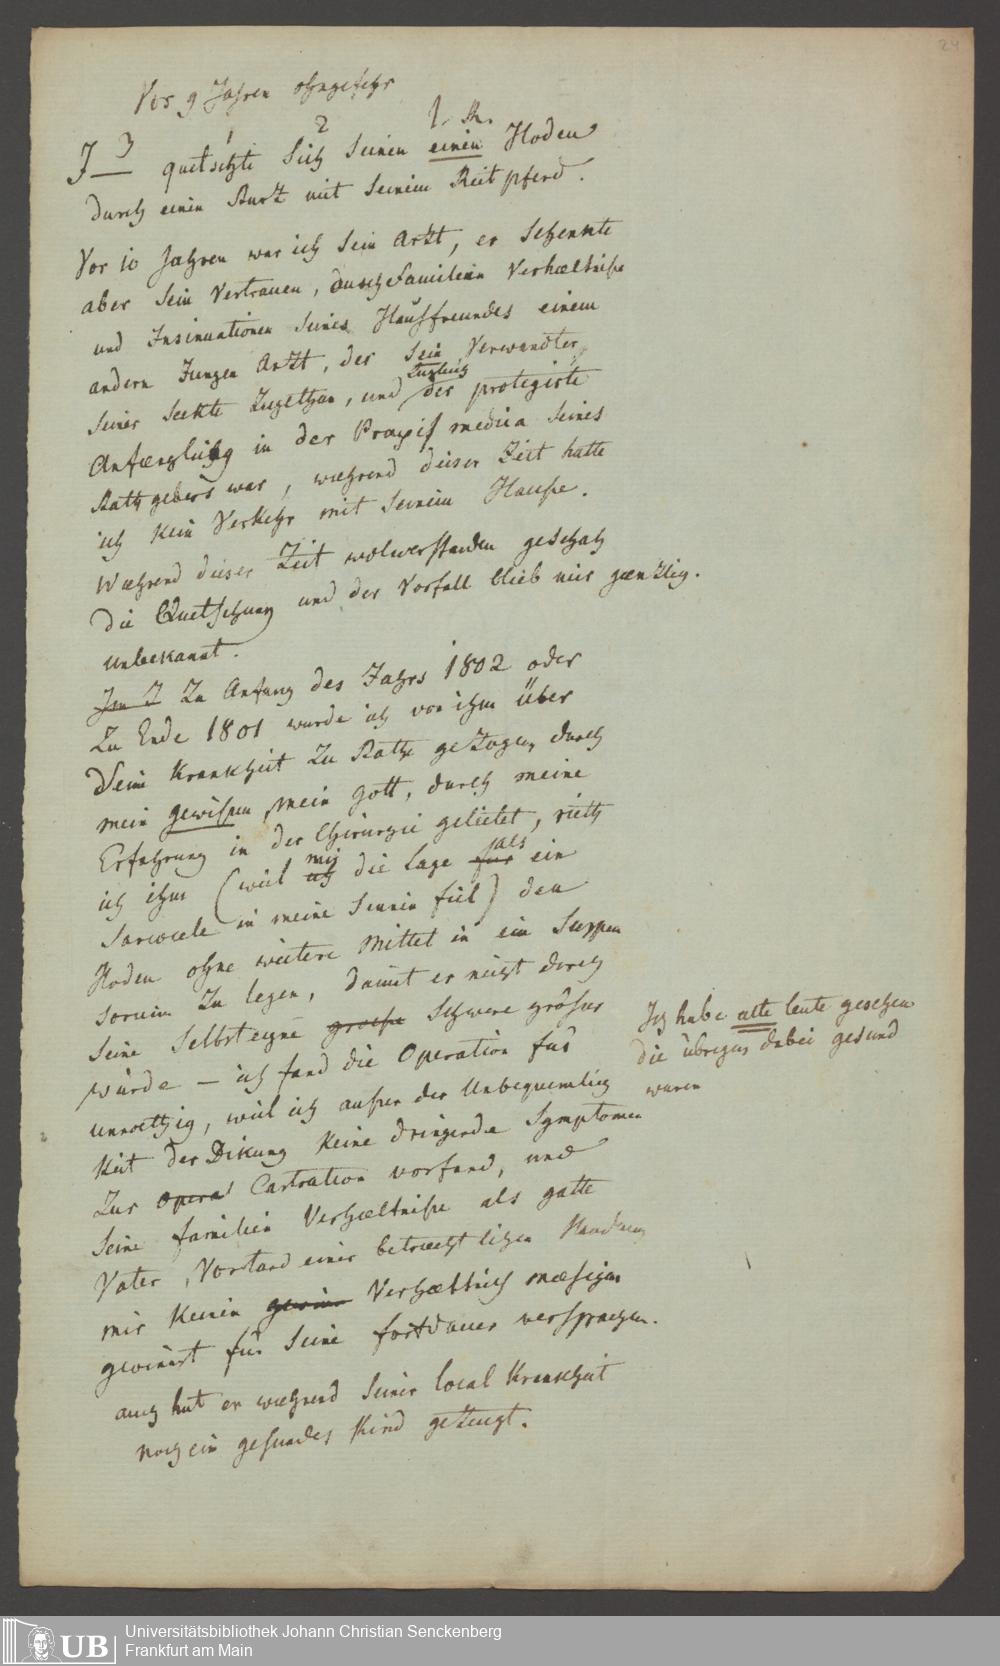 24
Vor 9 Jahren ohngefehr
1 2 3
J— quetschte sich seinen einen Hoden
durch einen Sturz mit seinem Reitpferd.
Vor 10 Jahren war ich sein Artzt, er schenkte
aber sein Vertrauen, durch familien Verhæltniße
und Insinuationen seines Haußfreundes einem
andern Jungen Artzt, der sein Verwandter,
seiner Seckte Zugethan, und Zugleich der protegirte
Anfænglich in der Praxis medica seines
Rathgebers war, während dieser Zeit hatte
ich kein Verkehr mit seinem Hauße.
Wæhrend dieser Zeit wolverstanden geschah
die Quetschung und der Vorfall blieb mir gæntzlich
unbekannt.
Im J Zu Anfang des Jahrs 1802 oder
Zu Ende 1801 wurde ich von ihm über
seine Krankheit Zu Rathe gezogen, durch
mein gewißen, mein Gott, durch meine
Erfahrung in der Chirurgie geleitet, rieth
ich ihm (weil ich mir die Lage für als ein
Sarcocele in meine Sinnen fiel) den
Hoden ohne weitere Mittel in ein Suspen
sorium Zu legen, damit er nicht durch
seine Selbsteigne große Schwere größer
würde — ich fand die Operation für
unnœthig, weil ich außer der Unbequemlich
keit der Dikung keine dringende Symptomen
Zur Opera Castration vorfand, und
seine familien Verhæltniße als gatte
Vater, Vorstand einer betræchtlichen Handlung
mir keinen gewinn Verhæltniß mæsigen
gewinnst für seine fortdauer versprachen.
auch hat er wæhrend seiner local Krankheit
noch ein gesundes Kind gezeugt.
Ich habe alte leute gesehen
die übrigens dabei gesund
waren
UB
Universitätsbibliothek Johann Christian Senckenberg
Frankfurt am Main